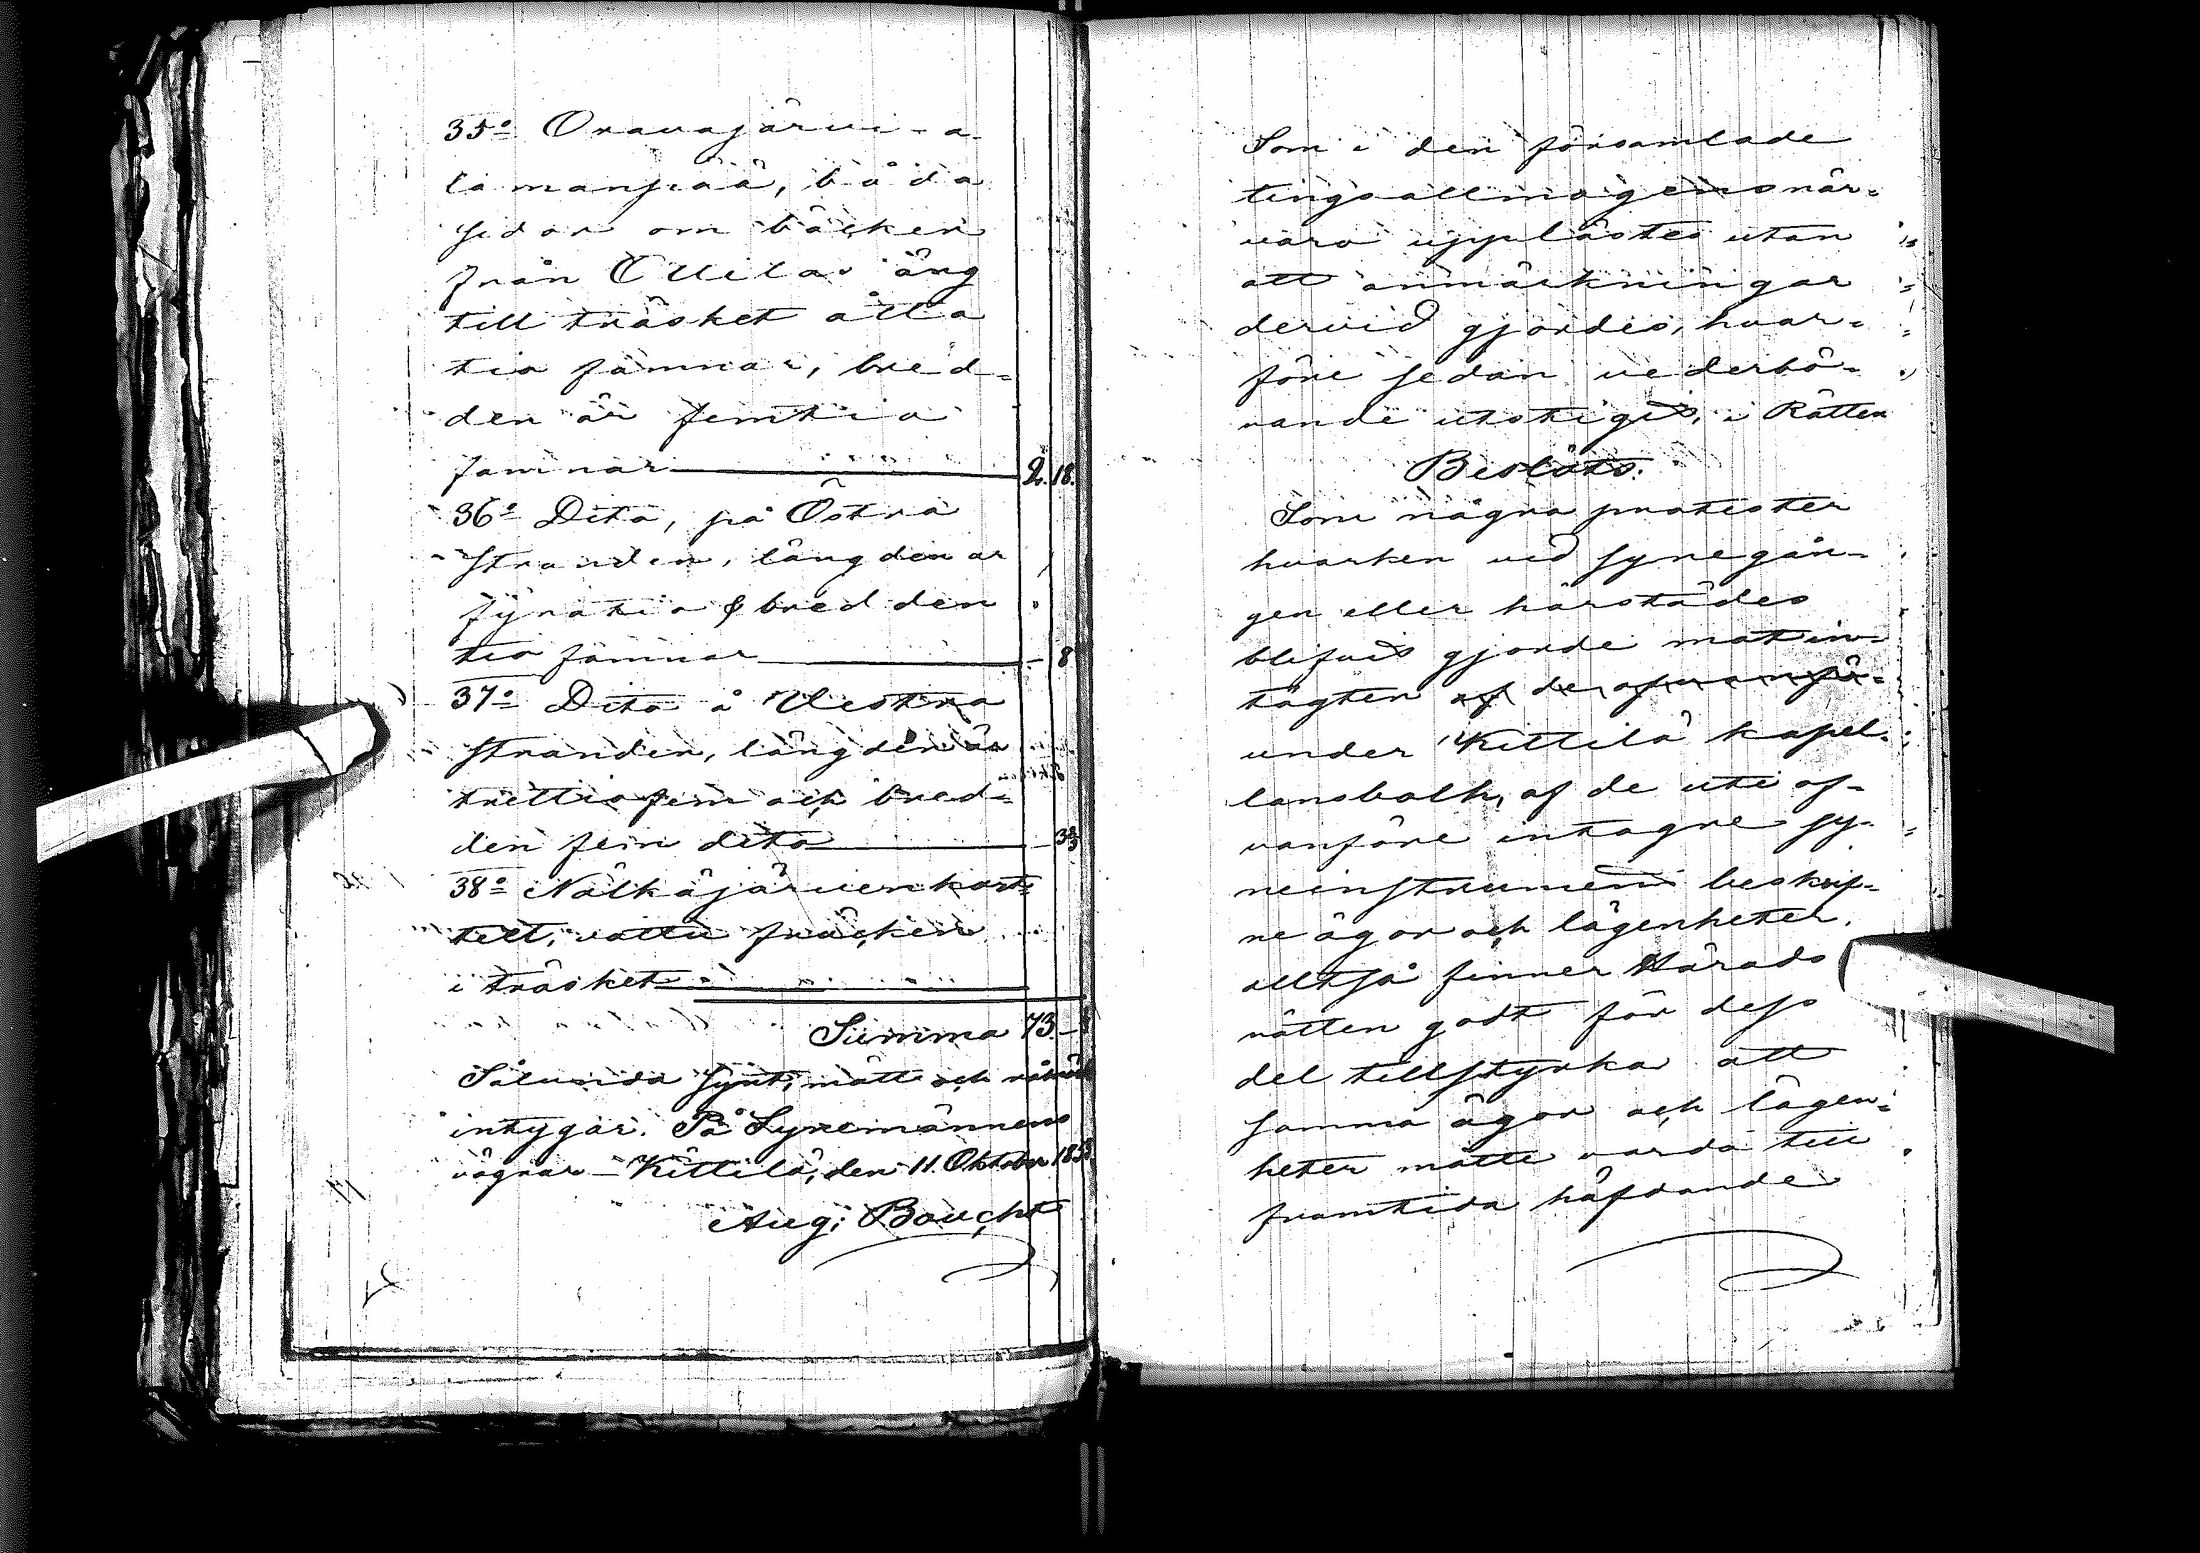 35o Oravajärvi-a-
lamanpää, båda
sidor om bäcken
från Ollilas äng
till träsket åtta
tio famnar, bred=
den är femtio
famnar 2. 18.
36o Dito, på Östra
stranden, längden är
fyratio & bredden
tio famnar - 8
37o Dito å Westra
stranden, längden är
trettiofem och bred=
den fem dito - 3
38o Nälkäjärvenkort=
telt, vattu fräcken
i träsket
Summa 73.
Sålunda synt, mätt och
intygar. På Synemännens
vägnar Kittilä, den 11 Oktober
Aug: Boucht
Som i den församlade
tingsallmogens när=
varo upplästes utan
att anmärkningar
dervid gjordes, hvar=
före sedan vederbö=
rande utstigit, i Rätten
Beslöts:
Som några protester
hvarken vid synegån=
gen eller härstädes
blifvit gjorde mot in=
tagten af de
under Kittilä kapel=
lansbolh, af de uti of=
vanföre intagne sy=
neinstrument beskrif=
ne ägor och lägenheter,
alltså finner Härads
rätten godt för dess
del tillstyrka att
samma ägor och lägen=
heter måtte varda till
framtida häfdande